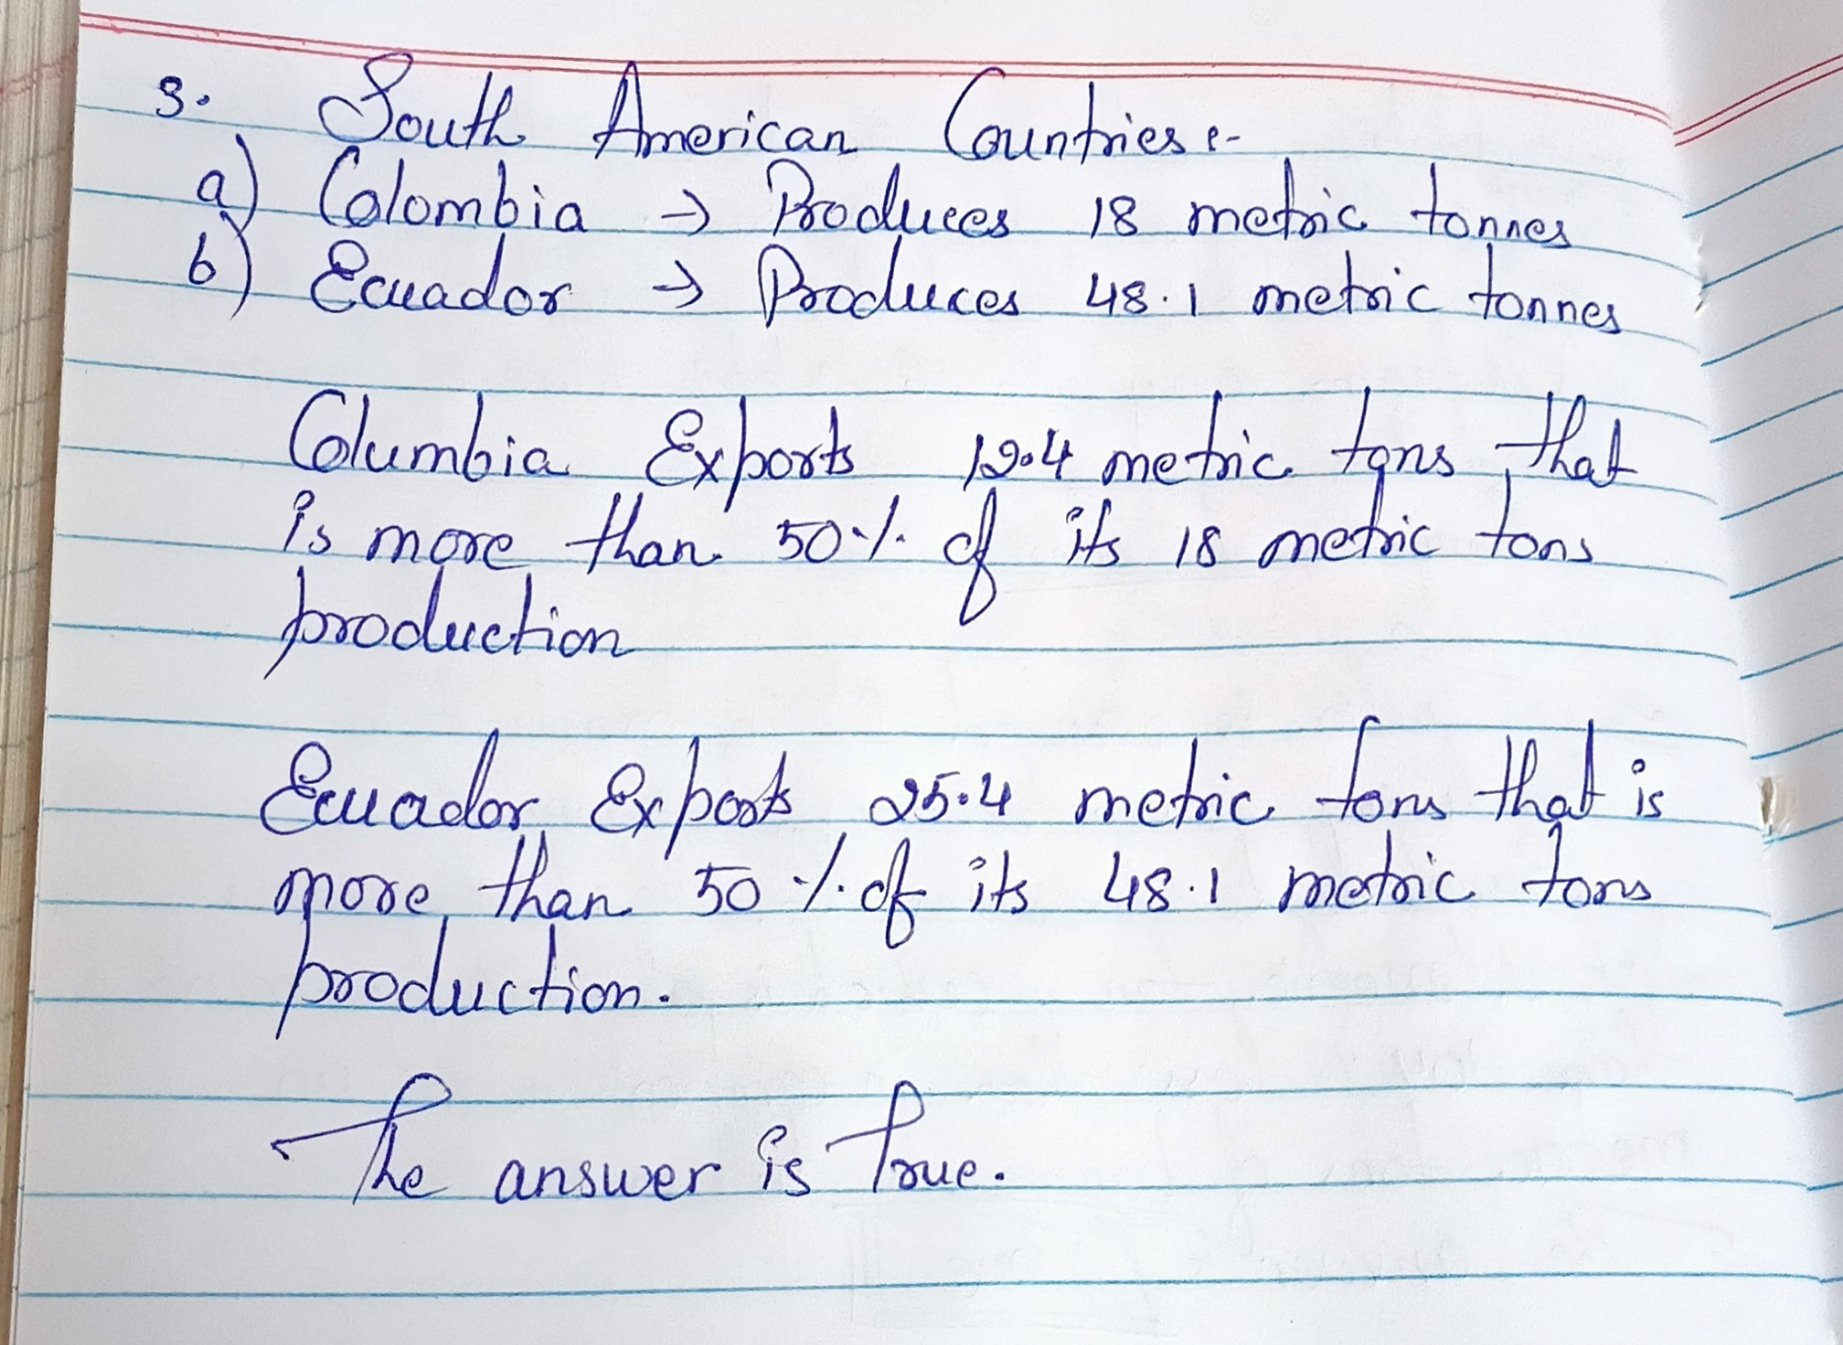 3. South American Countries :-
a) Colombia → Produces 18 metric tonnes
b) Ecuador → Produces 48.1 metric tonnes
Columbia Exports 12.4 metric tons that
is more than 50% of its 18 metric tons
production
Ecuador Exports 25.4 metric tons that is
more than 50% of its 48.1 metric tons
production.
The answer is True.